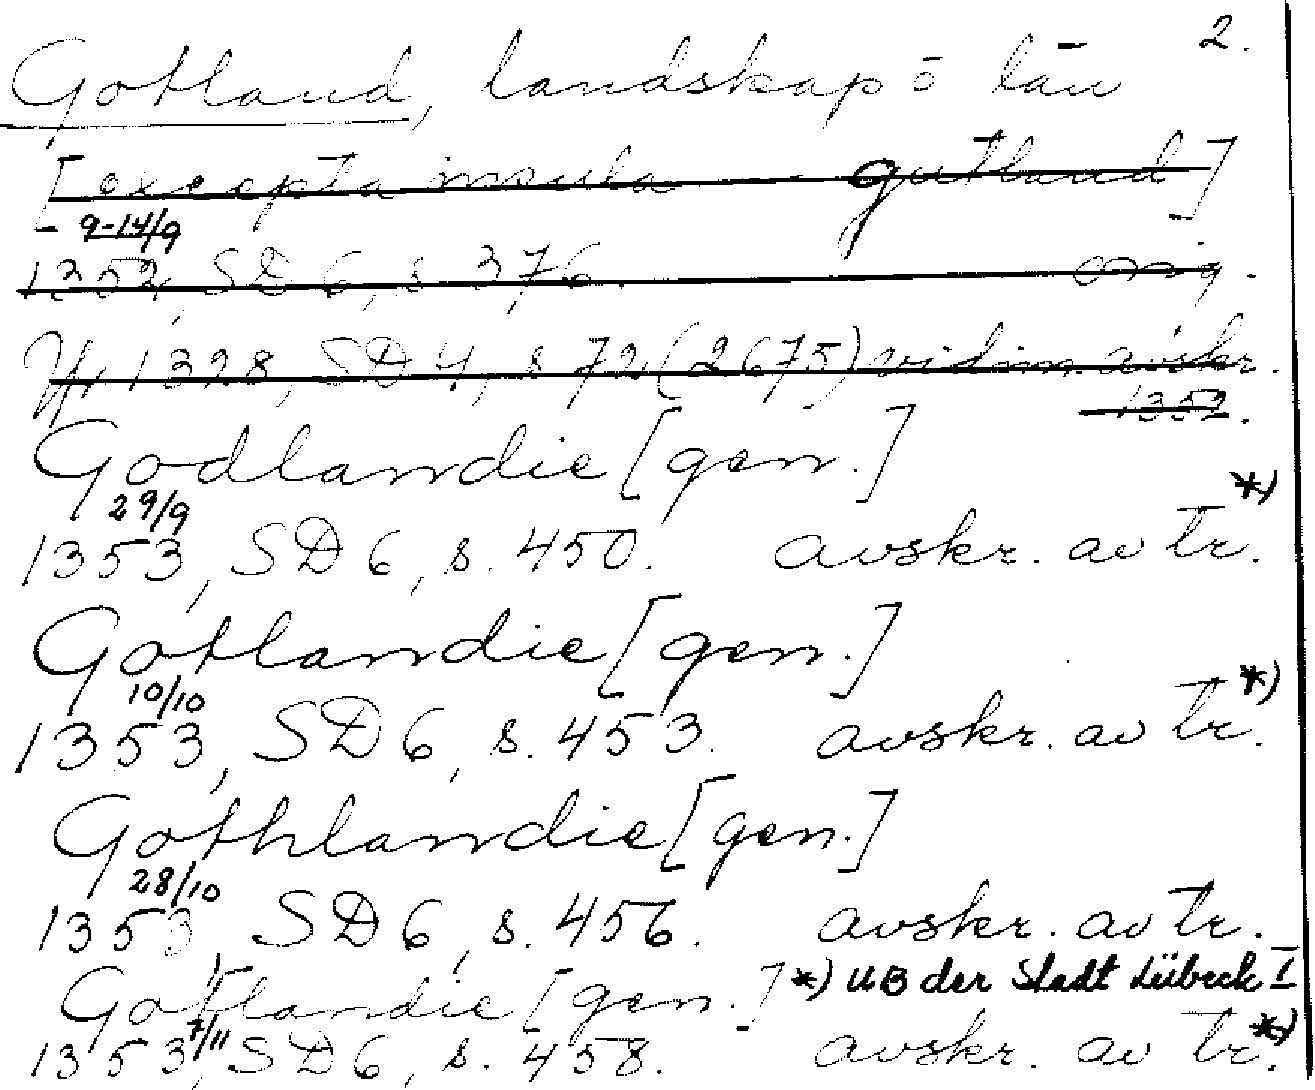 2.
Gotland, landskap o län
[excepta insula gutland]
9-14/9
1352, SD 6, s. 376. orig.
1328, SD 4, s. 72 (2675) vidim. avskr.
1352.
Godlandie [gen.]
29/9 *)
1353, SD 6, s. 450. avskr. av tr.
Gotlandie [gen.]
10/10 *)
1353, SD 6, s. 453. avskr. av tr.
Gothlandie [gen.]
28/10
1353, SD 6, s. 456. avskr. av tr.
Gotlandie [gen.] *) UB der Stadt Lübeck I
7/11 *)
1353, SD 6, s. 458. avskr. av tr.